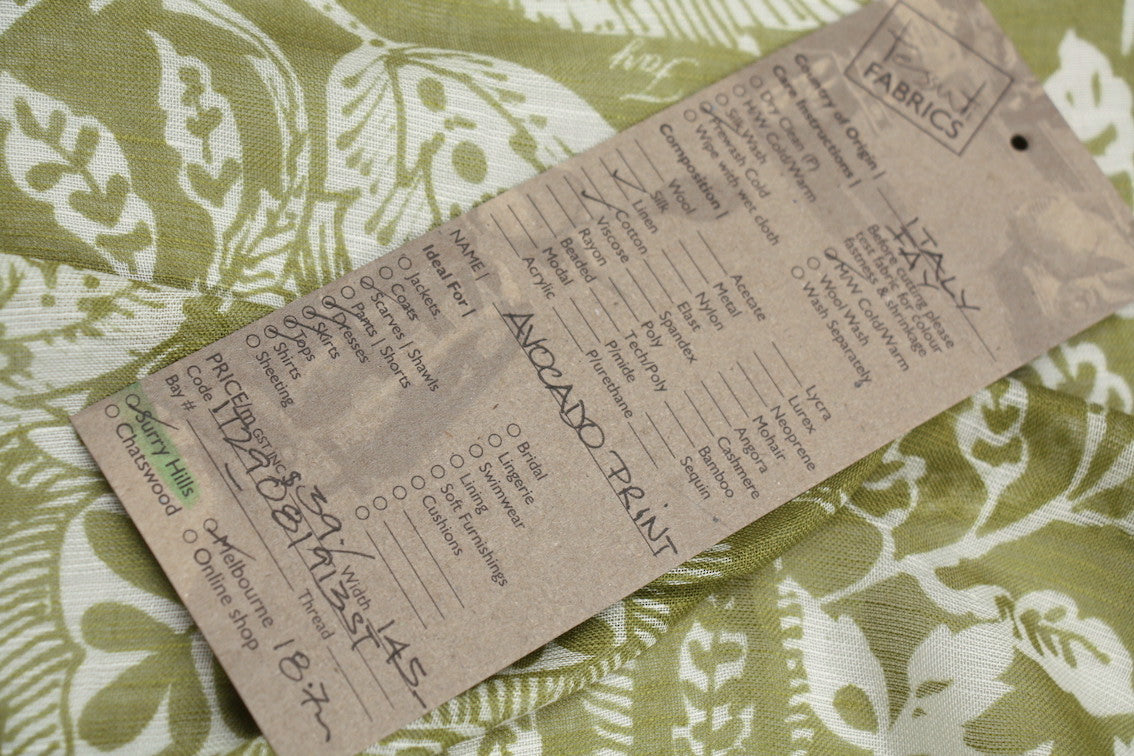 Tessuti
FABRICS
Country of Origin | ITALY
Care Instructions | ITALY
Dry Clean (P)
H/W Cold/Warm
Silk Wash
Prewash Cold
Wipe with wet cloth
Before cutting please
test fabric for colour
fastness & shrinkage
M/W Cold/Warm
Wool Wash
Wash Separately
Composition |
Wool
Silk
Linen
Cotton
Viscose
Rayon
Beaded
Modal
Acrylic
Acetate
Metal
Nylon
Elast
Spandex
Poly
Tech/Poly
P/mide
P/urethane
Lycra
Lurex
Neoprene
Mohair
Angora
Cashmere
Bamboo
Sequin
NAME | AVOCADO PRINT
Ideal For |
Jackets
Coats
Scarves | Shawls
Pants | Shorts
Dresses
Skirts
Tops
Shirts
Sheeting
Bridal
Lingerie
Swimwear
Lining
Soft Furnishings
Cushions
PRICE/m GST INC $39.- Width 145
Code
Bay #
Thread
Surry Hills
Chatswood
Melbourne
Online shop
18.7m